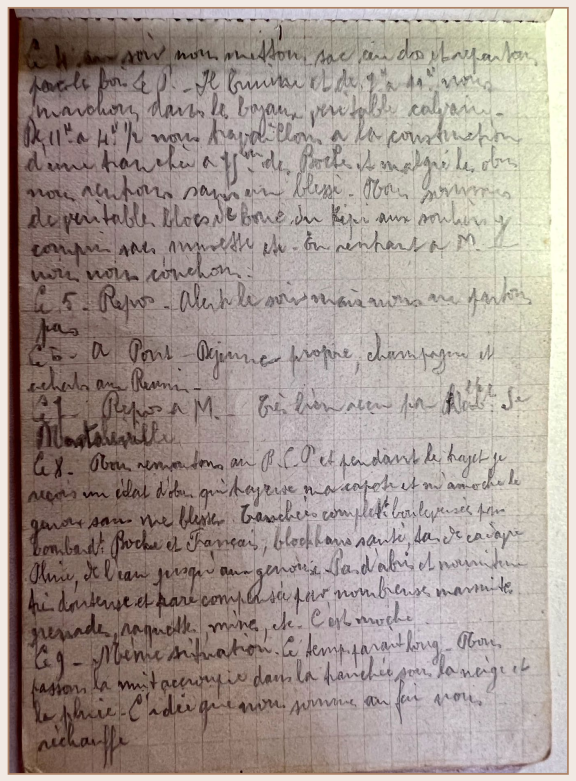 Le 4 au soir, nous mettons sac au dos et repartons
par le bois Le P. - Il bruine et de 9h à 11h nous
marchons dans le boyau, véritable calvaire -
De 11h à 4h 1/2 nous travaillons à la construction
d'une tranchée à des Boches et malgré les obus
nous rentrons sans un blessé - Nous sommes
de véritables blocs de boue du képi aux souliers y
compris sac musette etc - En rentrant à M.
nous nous couchons.
Le 5 - Repos - Alerte le soir mais nous ne partons
pas
Le 6 - A Pont - Déjeuner propre, champagne et
achats aux Réunis -
Le 7 - Repos à M. - Très bien reçu par De
Le 8 - Nous remontons au B.L.P et pendant le trajet je
reçois un éclat d'obus qui traverse ma capote et m'amoche le
genou sans me blesser. Tranchées complètt bouleversées par
bombardt Boche et Français, blockhaus sauté, tas de cadavres
Pluie, de l'eau jusqu'aux genoux. Pas d'abris et nourriture
très douteuse et rare compensée par nombreuses marmites
grenades, raquettes, mines, etc - C'est moche.
Le 9 - Même situation. Le temps parait long - Nous
passons la nuit accroupis dans la tranchée sous la neige et
la pluie - L'idée que nous sommes au feu nous
réchauffe